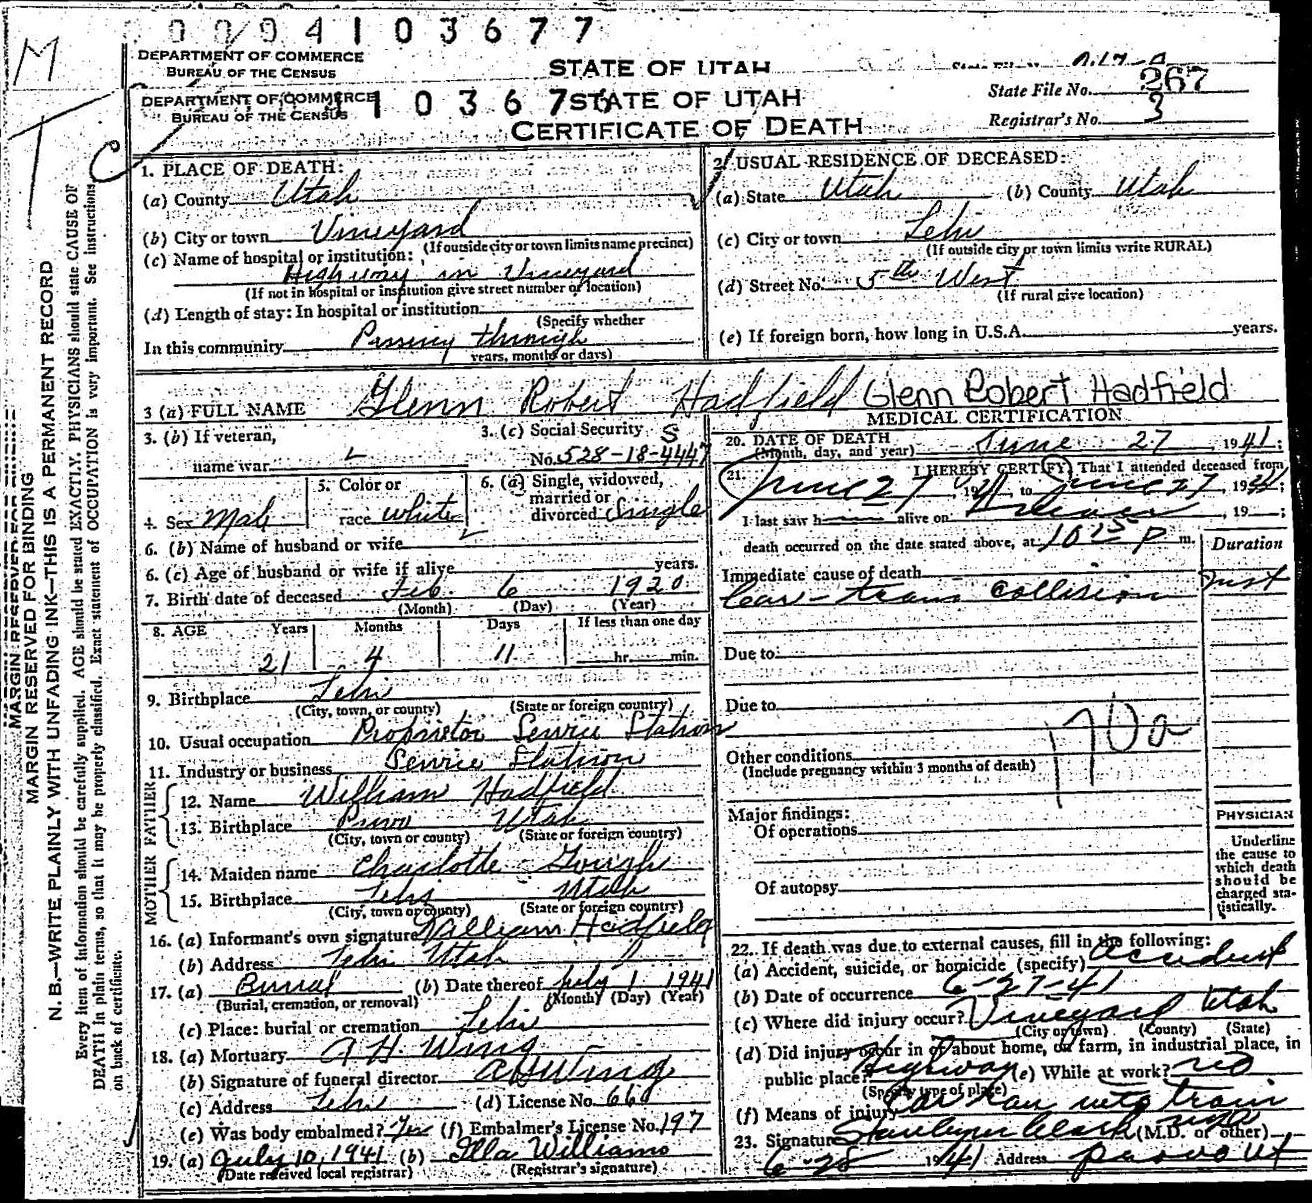 M
T
C
0094103677
DEPARTMENT OF COMMERCE
BUREAU OF THE CENSUS
STATE OF UTAH
DEPARTMENT OF COMMERCE
BUREAU OF THE CENSUS
10367
STATE OF UTAH
CERTIFICATE OF DEATH
State File No. 267
Registrar's No. 3
MARGIN RESERVED FOR BINDING
N. B.—WRITE PLAINLY WITH UNFADING INK—THIS IS A PERMANENT RECORD
Every item of information should be carefully supplied. AGE should be stated EXACTLY. PHYSICIANS should state CAUSE OF
DEATH in plain terms, so that it may be properly classified. Exact statement of OCCUPATION is very important. See instructions
on back of certificate.
1. PLACE OF DEATH:
(a) County Utah
(b) City or town Vineyard
(If outside city or town limits name precinct)
(c) Name of hospital or institution:
Highway in Vineyard
(If not in hospital or institution give street number or location)
(d) Length of stay: In hospital or institution
(Specify whether
In this community Passing through
years, months or days)
2. USUAL RESIDENCE OF DECEASED:
(a) State Utah (b) County Utah
(c) City or town Lehi
(If outside city or town limits write RURAL)
(d) Street No. 5th West
(If rural give location)
(e) If foreign born, how long in U.S.A. years.
3 (a) FULL NAME Glenn Robert Hadfield Glenn Robert Hadfield
3. (b) If veteran,
name war
3. (c) Social Security
No. 528-18-4447
4. Sex Male
5. Color or
race white
6. (a) Single, widowed,
married or
divorced Single
6. (b) Name of husband or wife
6. (c) Age of husband or wife if alive years.
7. Birth date of deceased Feb. 6 1920
(Month) (Day) (Year)
8. AGE Years Months Days If less than one day
21 4 11 hr. min.
9. Birthplace Lehi
(City, town, or county) (State or foreign country)
10. Usual occupation Proprietor Service Station
11. Industry or business Service Station
FATHER
12. Name William Hadfield
13. Birthplace Provo Utah
(City, town or county) (State or foreign country)
MOTHER
14. Maiden name Charlotte Gough
15. Birthplace Lehi Utah
(City, town or county) (State or foreign country)
16. (a) Informant's own signature William Hadfield
(b) Address Lehi Utah
17. (a) Burial (b) Date thereof July 1 1941
(Burial, cremation, or removal) (Month) (Day) (Year)
(c) Place: burial or cremation Lehi
18. (a) Mortuary A H. Wing
(b) Signature of funeral director A H Wing
(c) Address Lehi (d) License No. 660
(e) Was body embalmed? Yes (f) Embalmer's License No. 197
19. (a) July 10, 1941 (b) Illa Williams
(Date received local registrar) (Registrar's signature)
MEDICAL CERTIFICATION
20. DATE OF DEATH June 27, 1941;
(Month, day, and year)
21. I HEREBY CERTIFY That I attended deceased from
June 27, 1941, to June 27, 1941;
I last saw h alive on , 19 ;
death occurred on the date stated above, at 10 15 P m.
Duration
Immediate cause of death
Car-train collision Inst
Due to
Due to
170a
Other conditions
(Include pregnancy within 3 months of death)
Major findings:
Of operations
Of autopsy
PHYSICIAN
Underline
the cause to
which death
should be
charged sta-
tistically.
22. If death was due to external causes, fill in the following:
(a) Accident, suicide, or homicide (specify) Accident
(b) Date of occurrence 6-27-41
(c) Where did injury occur? Vineyard Utah
(City or town) (County) (State)
(d) Did injury occur in or about home, on farm, in industrial place, in
public place? Highway (e) While at work? no
(Specify type of place)
(f) Means of injury Car ran into train
23. Signature Clark (M.D. or other)
6-28 1941 Address Provo Ut